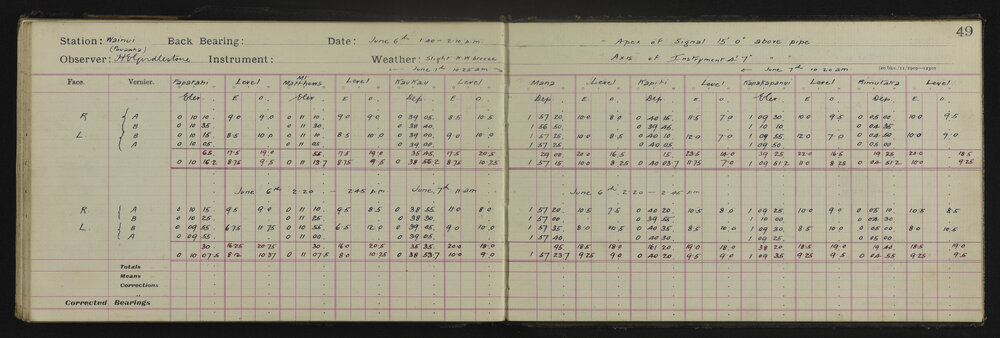 49
Station: Wainui Back Bearing: Date: June 6th 1.40 - 2.10 p.m. - Apex of Signal 15' 0" above pipe
(Pouawha)
Observer: H E Girdlestone Instrument: Weather: Slight N.W. breeze Axis of Instrument 4' 7" " "
← June 7th 10.25 a.m → ← June 7th 10.20 am
Face. Vernier. Papatahi Level Mt Matthews Level Kaukau Level Mana Level Kapiti Level Kapakapanui Level Rimutaka Level
Elev E O. Elev. E O. Dep. E O. Dep. E O. Dep. E O. Dep. E O. Dep. E O.
R A 0 10 10 9.0 9.0 0 11 10 9.0 9.0 0 39 05 8.5 10.5 1 57 20 10.0 8.0 0 40 15 11.5 7.0 1 09 30 10.0 9.5 0 05 00 10.0 9.5
B 0 10 35 0 11 30 0 38 40 1 56 50 0 39 45 1 10 10 0 04 35
L B 0 10 15 8.5 10.0 0 11 10 8.5 10.0 0 39 00 9.0 10.0 1 57 25 10.0 8.5 0 40 10 12.0 7.0 1 09 55 12.0 7.0 0 04 50 10.0 9.0
A 0 10 05 0 11 05 0 39 00 1 57 25 0 40 05 1 09 50 0 05 00
65 17.5 19.0 55 17.5 19.0 35 45 17.5 20.5 29 00 20.0 16.5 15 23.5 14.0 39 25 22.0 16.5 19 25 20.0 18.5
0 10 16.2 8.75 9.5 0 11 13.7 8.75 9.5 0 38 56.2 8.75 10.25 1 57 15 10.0 8.25 0 40 03.7 11.75 7.0 1 09 51.2 11.0 8.25 0 04 51.2 10.0 9.25
June 6th 2.20 - 2.45 p.m June 7th 11 am June 6th 2.20 - 2.45 p.m
R A 0 10 15 9.5 9.0 0 11 10 9.5 8.5 0 38 55 11.0 8.0 1 57 20 10.5 7.5 0 40 20 10.5 8.0 1 09 25 10.0 9.0 0 05 10 10.5 8.5
B 0 10 25 0 11 25 0 38 30 1 57 00 0 39 55 1 10 00 0 04 30
L B 0 09 55 6.75 11.75 0 10 55 6.5 12.0 0 39 05 9.0 10.0 1 57 35 8.0 10.5 0 40 35 8.5 10.0 1 09 30 8.5 10.0 0 05 00 8.0 10.5
A 0 09 55 0 11 00 0 39 05 1 57 40 0 40 30 1 09 25 0 05 00
30 16.25 20.75 30 16.0 20.5 35 35 20.0 18.0 95 18.5 18.0 161 20 19.0 18.0 38 20 18.5 19.0 19 40 18.5 19.0
0 10 07.5 8.12 10.37 0 11 07.5 8.0 10.25 0 38 53.7 10.0 9.0 1 57 23.7 9.25 9.0 0 40 20 9.5 9.0 1 09 35 9.25 9.5 0 04 55 9.25 9.5
Totals
Means
Corrections
Corrected Bearings